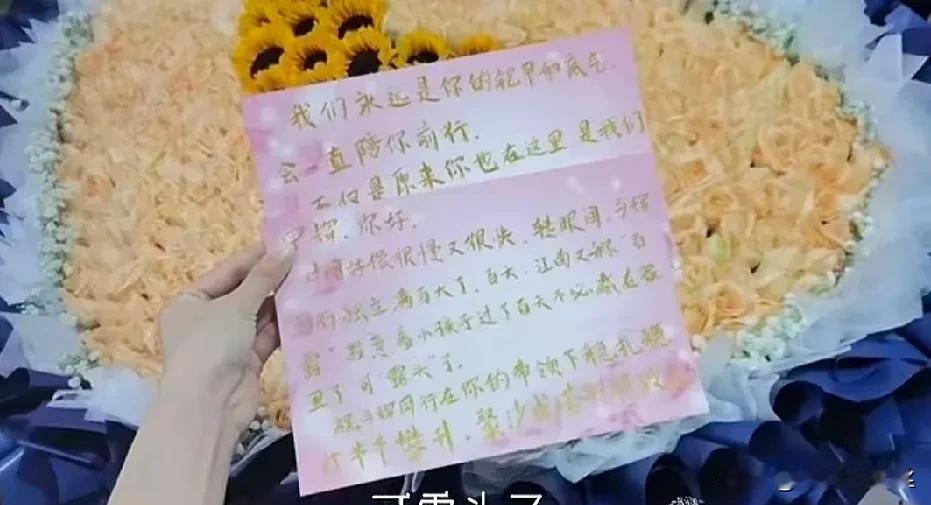 我们永远是你的铠甲和底气.
会一直陪你前行.
不仅是原来你也在这里 是我们
你好.
时间好像很慢又很快. 转眼间. 与辉
同行独立满百天了. 百天. 江南又称"百
露". 意意着小孩子过了百天不必藏在容
里了 可"露头"了.
愿与辉同行在你的带领下稳扎稳
步步攀升. 聚沙成塔
可露头了